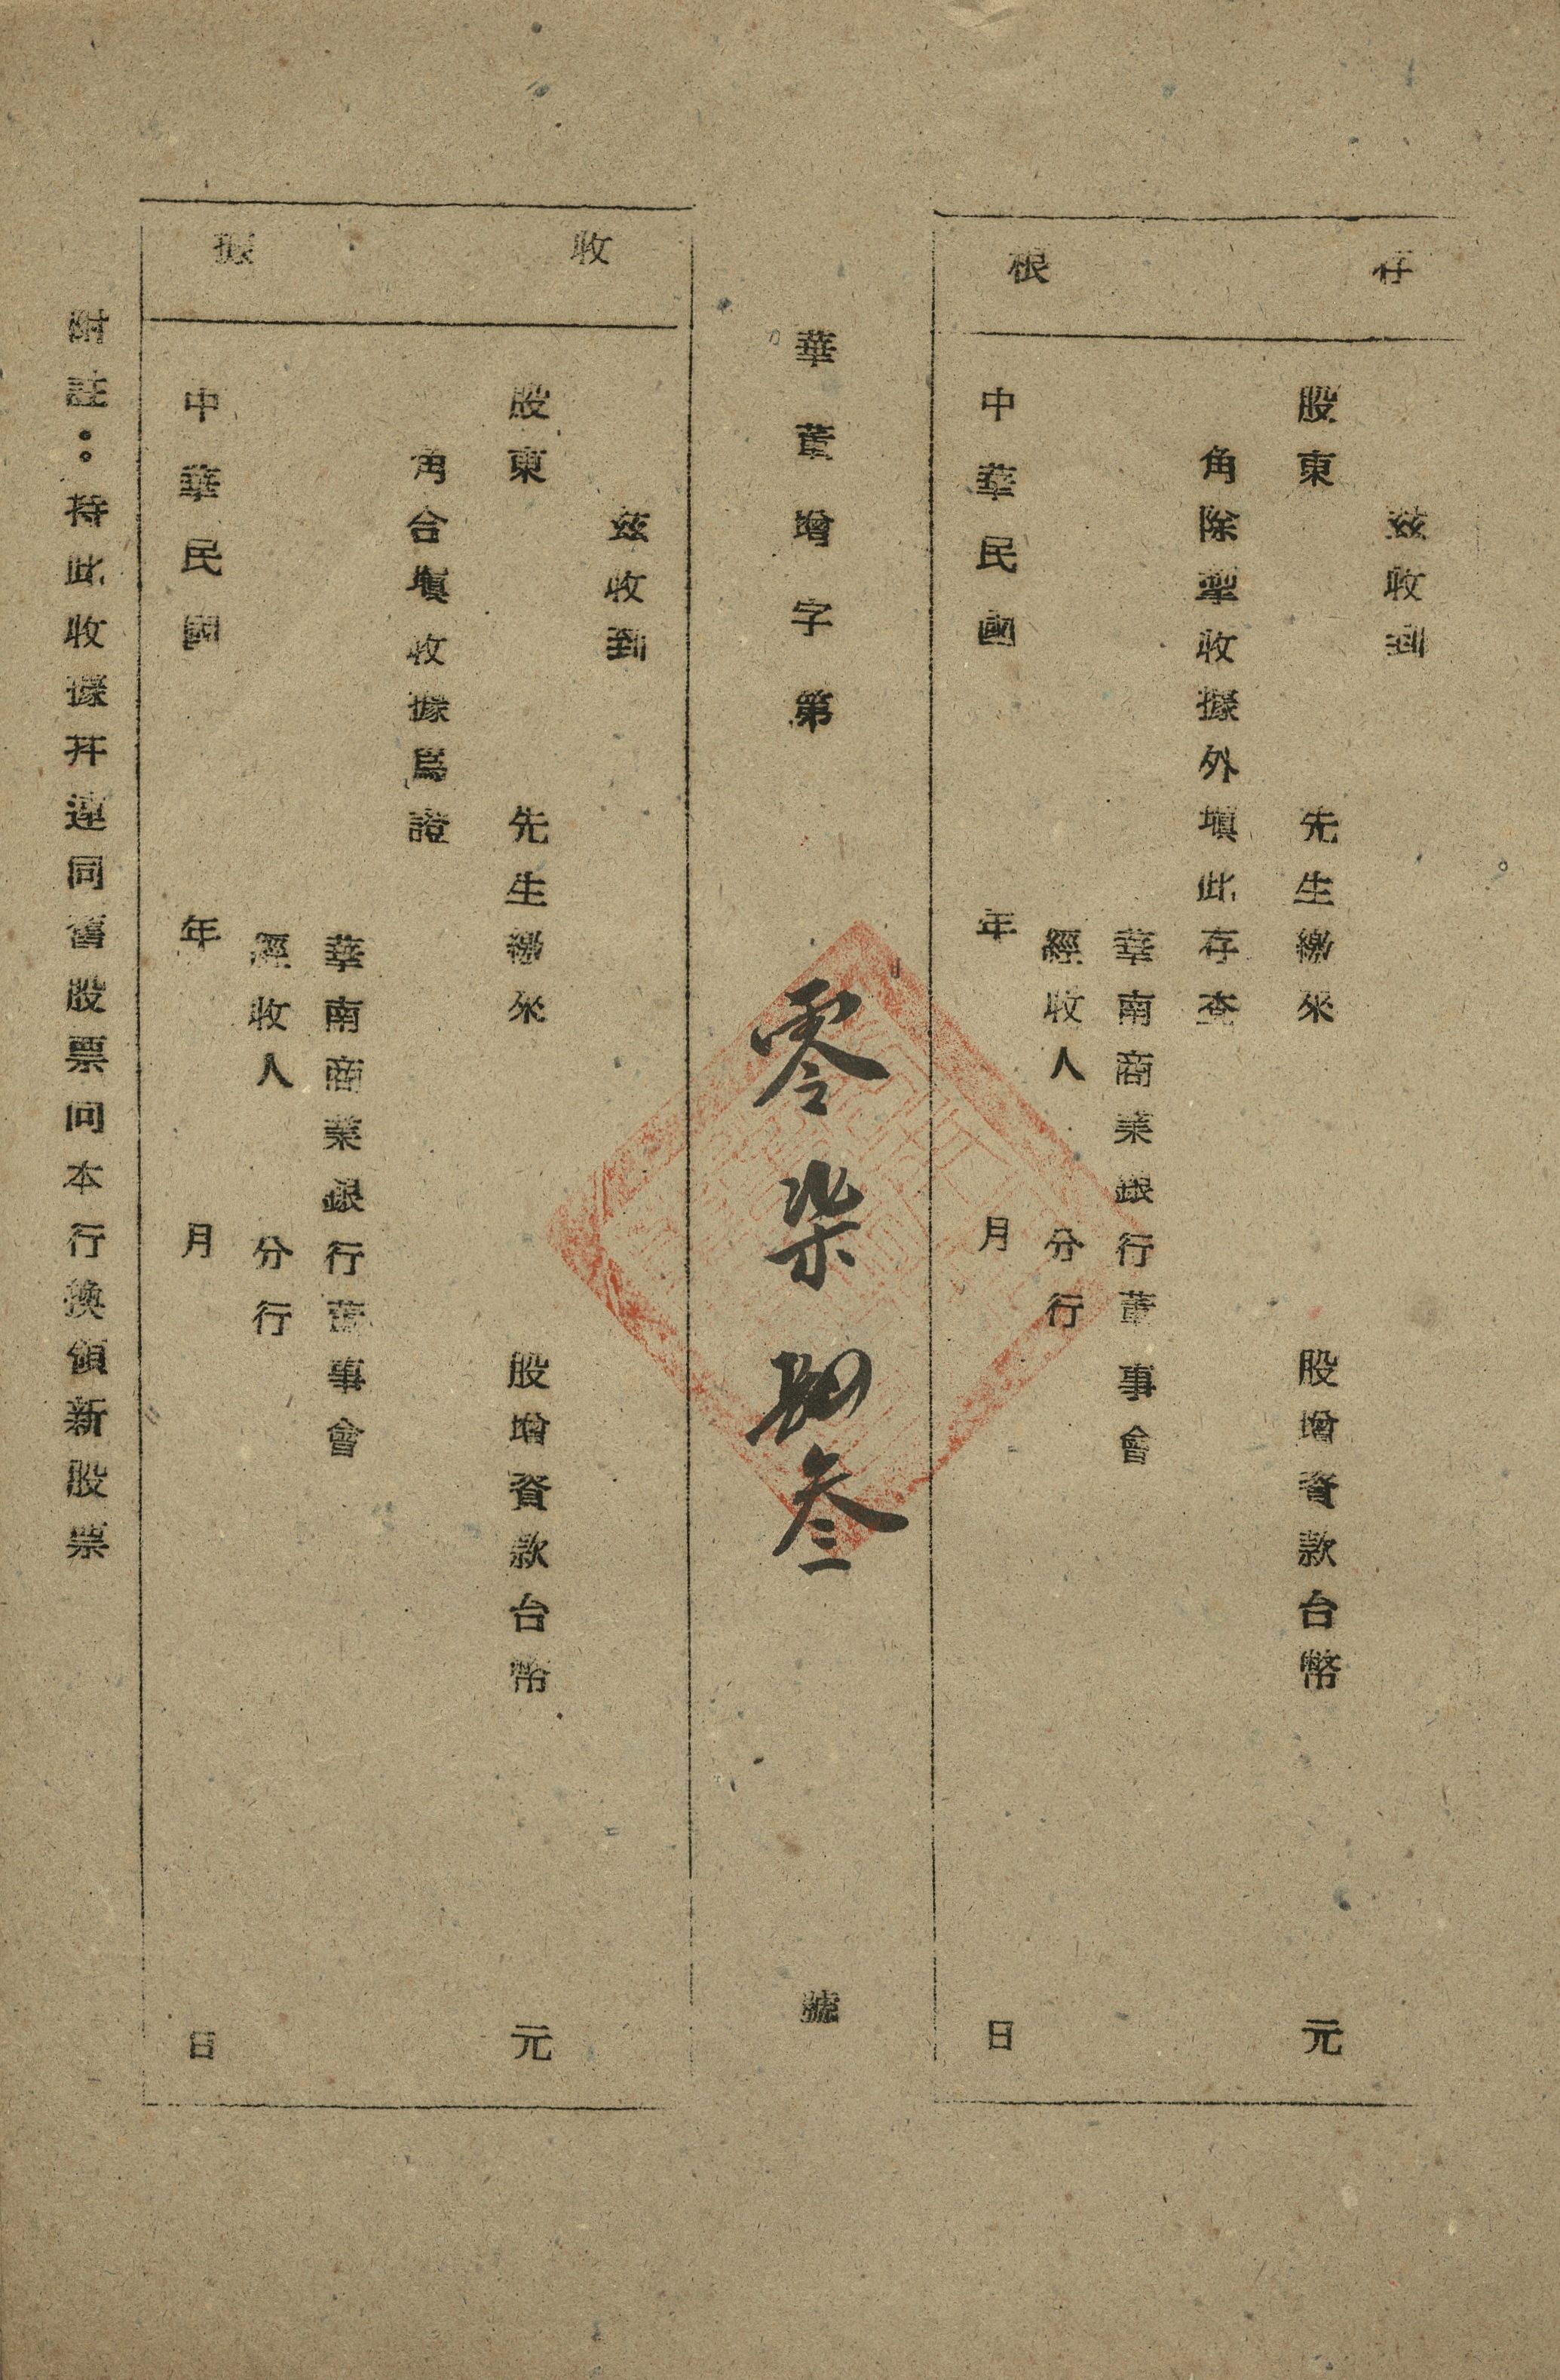 存根
茲收到
股東 先生繳來 股增資款台幣 元
角除掣收據外填此存查
華南商業銀行董事會
經收人 分行
中華民國 年 月 日
華董增字第 零柒肆叁 號
收據
茲收到
股東 先生繳來 股增資款台幣 元
角合填收據爲證
華南商業銀行董事會
經收人 分行
中華民國 年 月 日
附註：持此收據幷連同舊股票向本行換領新股票